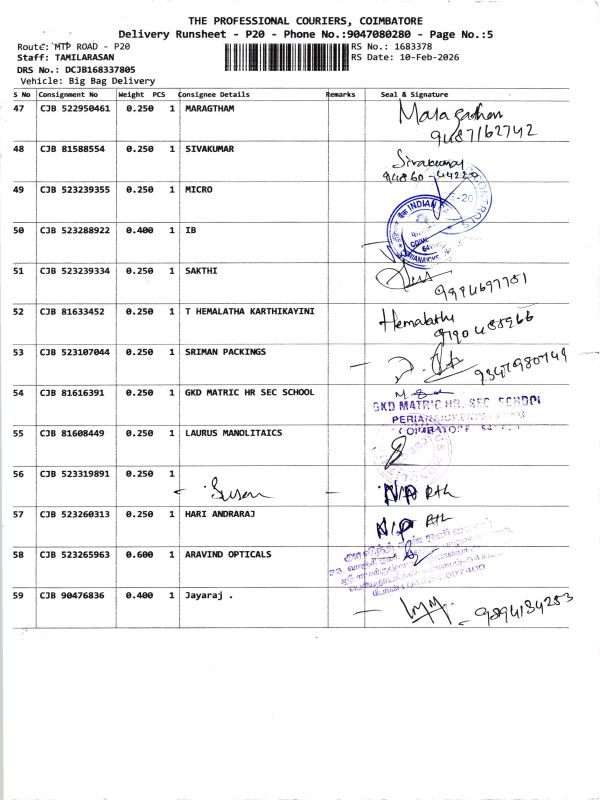 THE PROFESSIONAL COURIERS, COIMBATORE
Delivery Runsheet - P20 - Phone No.:9047080280 - Page No.:5
Route: MTP ROAD - P20 RS No.: 1683378
Staff: TAMILARASAN RS Date: 10-Feb-2026
DRS No.: DCJB168337805
Vehicle: Big Bag Delivery
S No Consignment No Weight PCS Consignee Details Remarks Seal & Signature
47 CJB 522950461 0.250 1 MARAGTHAM
9487162742
48 CJB 81588554 0.250 1 SIVAKUMAR
49 CJB 523239355 0.250 1 MICRO
50 CJB 523288922 0.400 1 IB
INDIAN
51 CJB 523239334 0.250 1 SAKTHI
52 CJB 81633452 0.250 1 T HEMALATHA KARTHIKAYINI
Hemalatha
53 CJB 523107044 0.250 1 SRIMAN PACKINGS
54 CJB 81616391 0.250 1 GKD MATRIC HR SEC SCHOOL
GKD MATRIC HR. SEC. SCHOOL
55 CJB 81608449 0.250 1 LAURUS MANOLITAICS
56 CJB 523319891 0.250 1
57 CJB 523260313 0.250 1 HARI ANDRARAJ
58 CJB 523265963 0.600 1 ARAVIND OPTICALS
59 CJB 90476836 0.400 1 Jayaraj .
9894134253